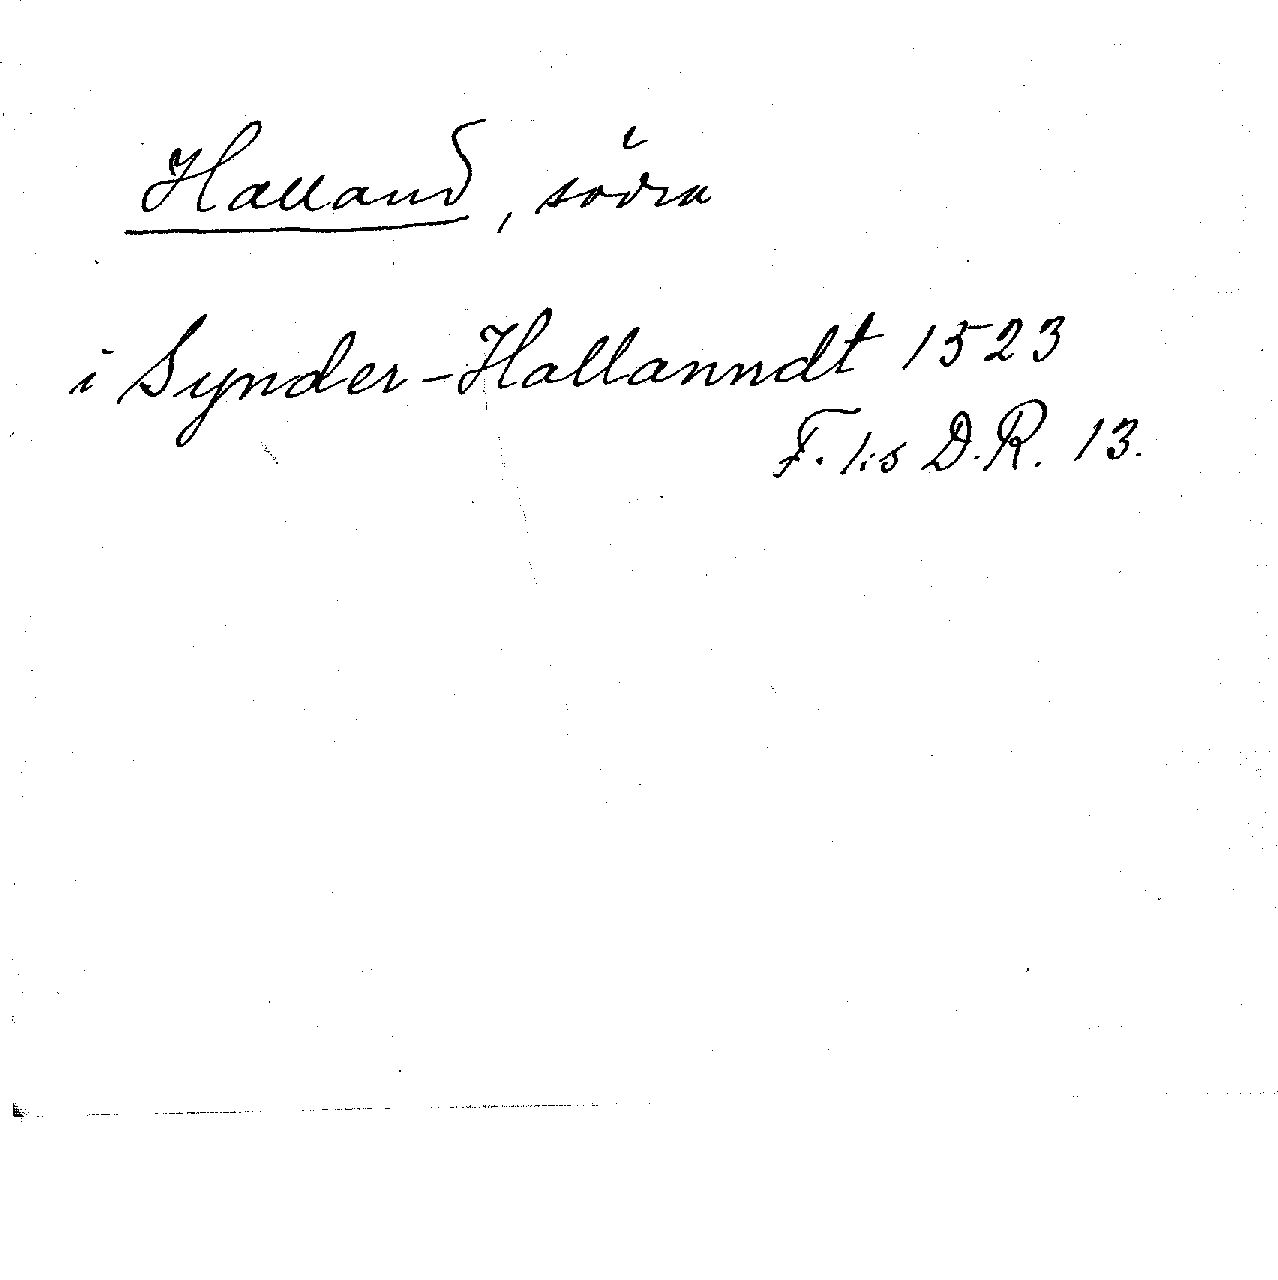 Halland, södra
i Synder-Hallanndt 1523
F. 1:s D.R. 13.